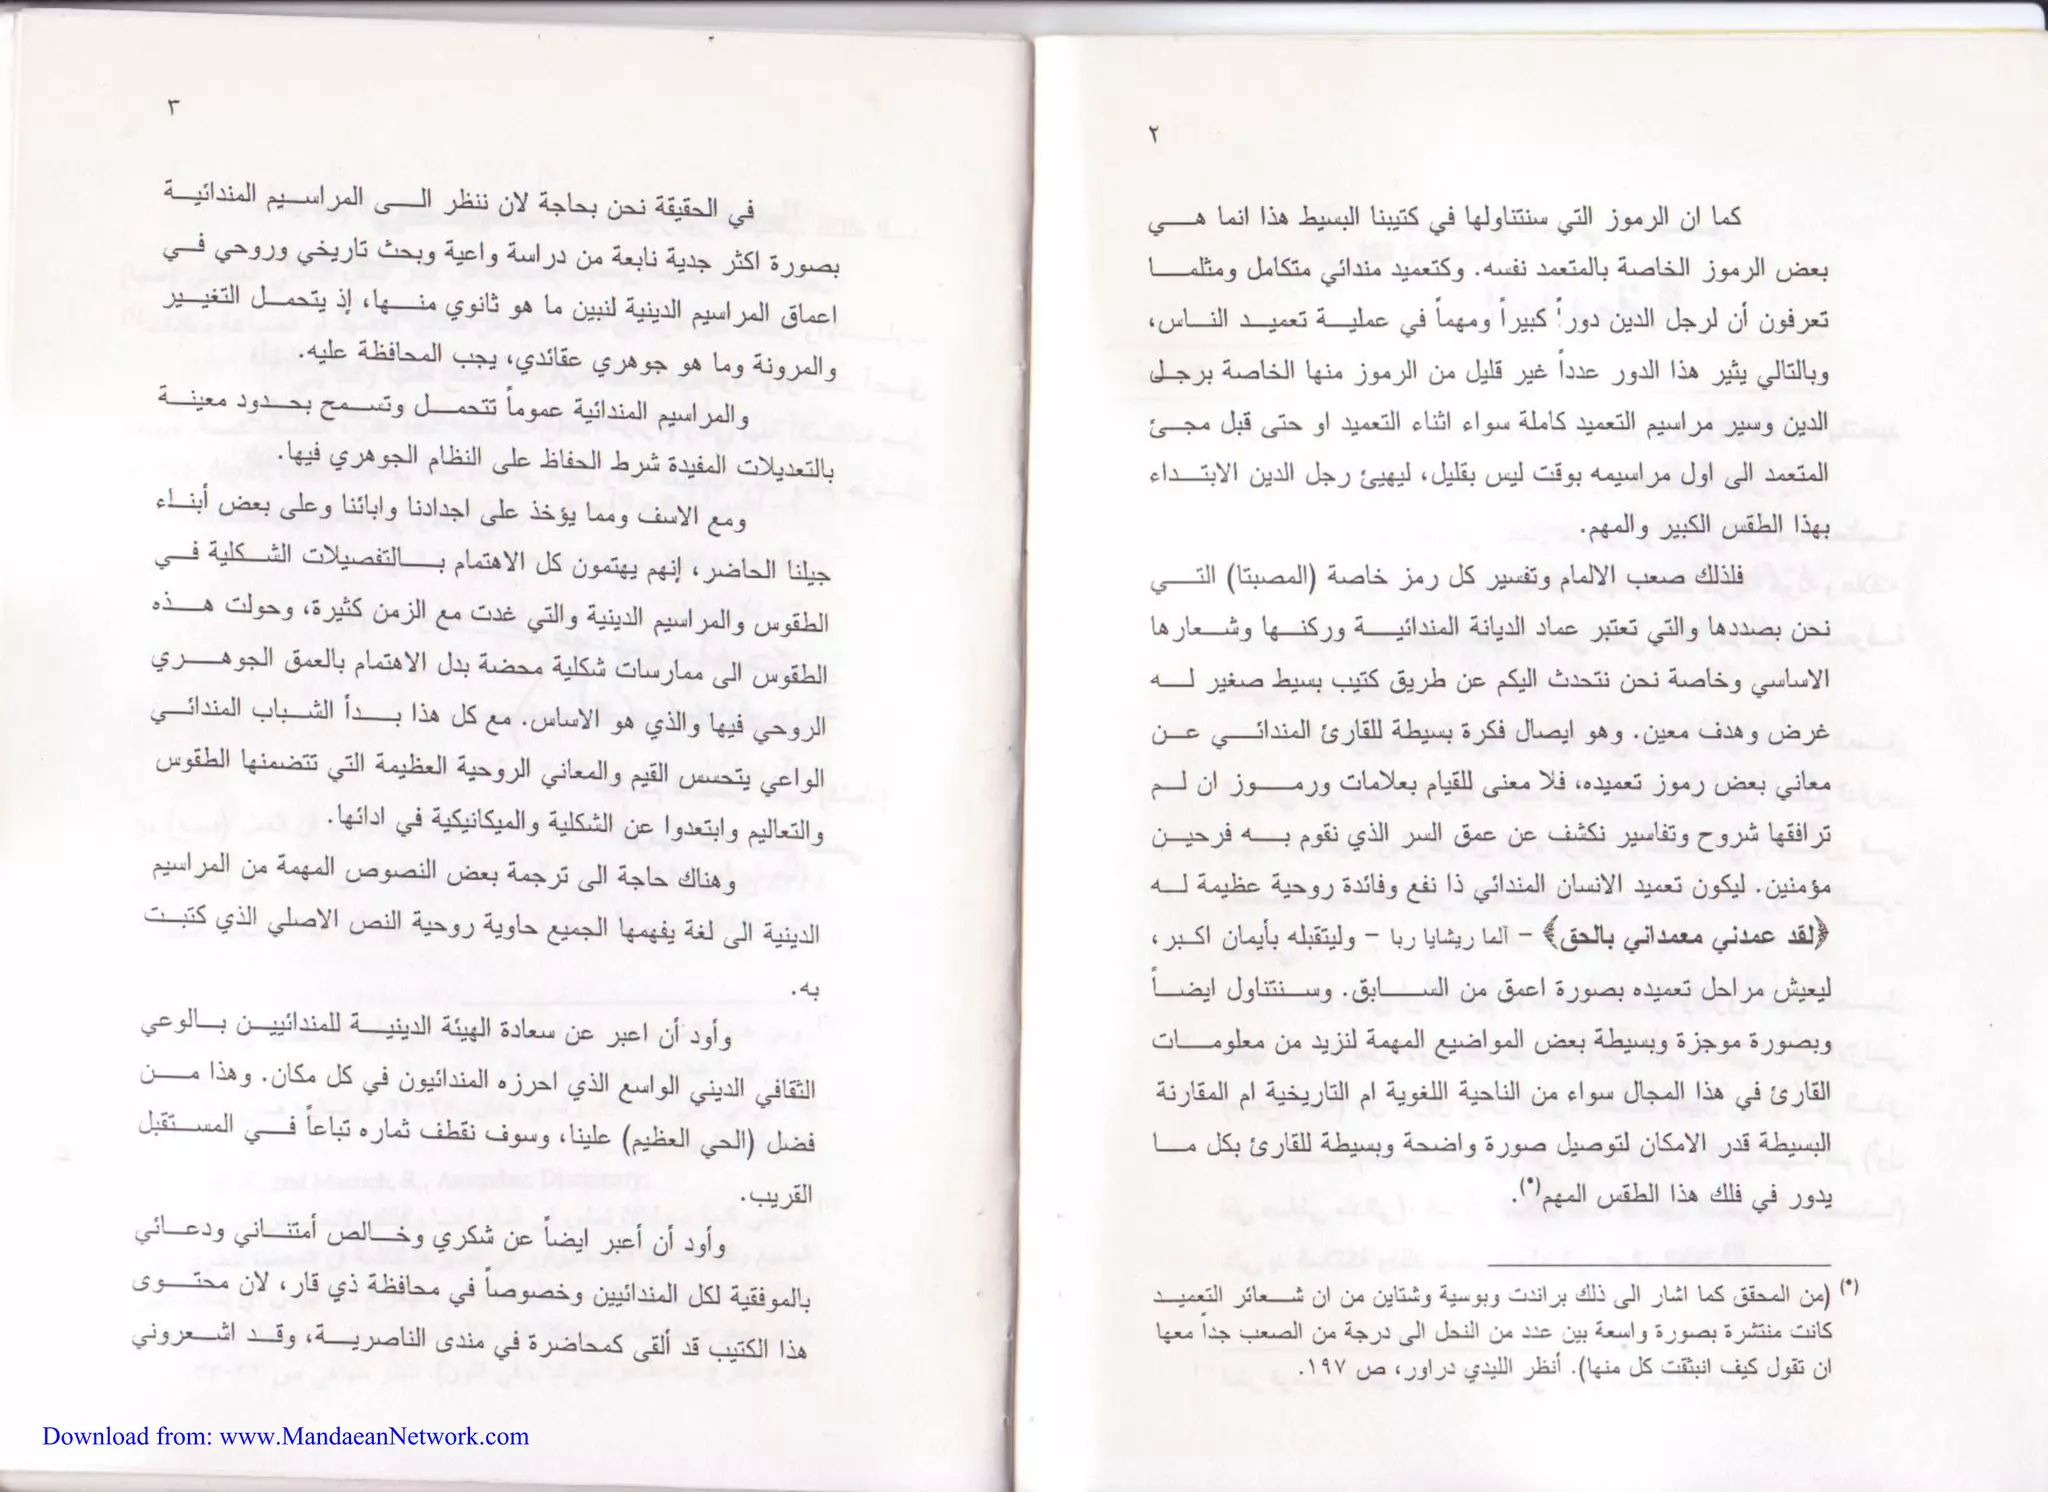 ٢
كما ان الرموز التي سنتناولها في كتيبنا البسيط هذا انما هي
بعض الرموز الخاصة بالمتعمد نفسه. وكتعميد مندائي متكامل ومثلما
تعرفون أن لرجل الدين دوراً كبيراً ومهماً في عملية تعميد الناس،
وبالتالي يثير هذا الدور عدداً غير قليل من الرموز منها الخاصة برجل
الدين وسير مراسيم التعميد كاملة سواء اثناء التعميد او حتى قبل مجئ
المتعمد الى اول مراسيمه بوقت ليس بقليل، ليهيئ رجل الدين الابتداء
بهذا الطقس الكبير والمهم.
فلذلك صعب الالمام وتفسير كل رمز خاصة (المصبتا) التي
نحن بصددها والتي تعتبر عماد الديانة المندائية وركنها وشعارها
الاساسي وخاصة نحن نتحدث اليكم عن طريق كتيب بسيط صغير له
غرض وهدف معين. وهو ايصال فكرة بسيطة للقارئ المندائي عن
معاني بعض رموز تعميده، فلا معنى للقيام بعلامات ورموز ان لم
ترافقها شروح وتفاسير تكشف عن عمق السر الذي نقوم به فرحين
مؤمنين. ليكون تعميد الانسان المندائي ذا نفع وفائدة روحية عظيمة له
﴿لقد عمدني معمداني بالحق﴾ - آلما ريشايا ربا - وليتقبله بأيمان اكبر،
ليعيش مراحل تعميده بصورة اعمق من السابق. وسنتناول ايضاً
وبصورة موجزة وبسيطة بعض المواضيع المهمة لنزيد من معلومات
القارئ في هذا المجال سواء من الناحية اللغوية ام التاريخية ام المقارنة
البسيطة قدر الامكان لتوصيل صورة واضحة وبسيطة للقارئ بكل ما
يدور في فلك هذا الطقس المهم(*).
(*) (من المحقق كما اشار الى ذلك براندت وبوسية وشتاين من ان شعائر التعميد
كانت منتشرة بصورة واسعة بين عدد من النحل الى درجة من الصعب جداً معها
ان نقول كيف انبثقت كل منها). أنظر الليدي دراور، ص ١٩٧.
٣
في الحقيقة نحن بحاجة لان ننظر الى المراسيم المندائية
بصورة اكثر جدية نابعة من دراسة واعية وبحث تاريخي وروحي في
اعماق المراسيم الدينية لنبين ما هو ثانوي منها، إذ يتحمل التغيير
والمرونة وما هو جوهري عقائدي، يجب المحافظة عليه.
والمراسيم المندائية عموماً تتحمل وتسمح بحدود معينة
بالتعديلات المفيدة شرط الحفاظ على النظام الجوهري فيها.
ومع الاسف ومما يؤخذ على اجدادنا وابائنا وعلى بعض أبناء
جيلنا الحاضر، إنهم يهتمون كل الاهتمام بالتفصيلات الشكلية في
الطقوس والمراسيم الدينية والتي غدت مع الزمن كثيرة، وحولت هذه
الطقوس الى ممارسات شكلية محضة بدل الاهتمام بالعمق الجوهري
الروحي فيها والذي هو الاساس. مع كل هذا بدأ الشباب المندائي
الواعي يتحسس القيم والمعاني الروحية العظيمة التي تتضمنها الطقوس
والتعاليم وابتعدوا عن الشكلية والميكانيكية في ادائها.
وهناك حاجة الى ترجمة بعض النصوص المهمة من المراسيم
الدينية الى لغة يفهمها الجميع حاوية روحية النص الاصلي الذي كتبت
به.
وأود أن اعبر عن سعادة الهيئة الدينية للمندائيين بالوعي
الثقافي الديني الواسع الذي احرزه المندائيون في كل مكان. وهذا من
فضل (الحي العظيم) علينا، وسوف نقطف ثماره تباعاً في المستقبل
القريب.
وأود أن أعبر ايضاً عن شكري وخالص أمتناني ودعائي
بالموفقية لكل المندائيين وخصوصاً في محافظة ذي قار، لان محتوى
هذا الكتيب قد ألقي كمحاضرة في مندى الناصرية، وقد اشعروني
Download from: www.MandaeanNetwork.com